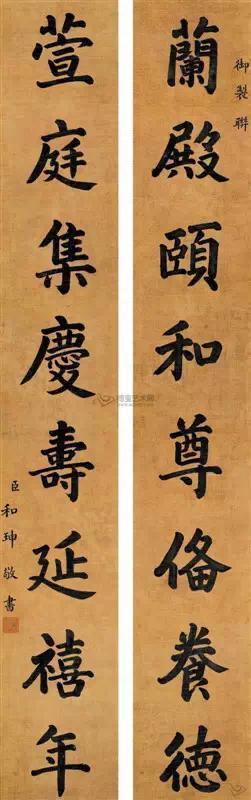 御製聯
蘭殿頤和尊俻養徳
萱庭集慶壽延禧年
臣和珅敬書